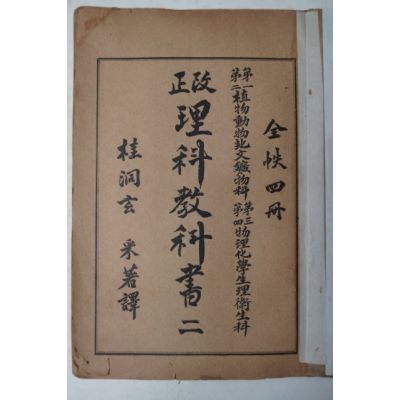 全帙四冊
第一第二植物動物地文鑛物科 第三第四物理化學生理衛生科
改正
理科教科書二
桂洞玄 采著譯